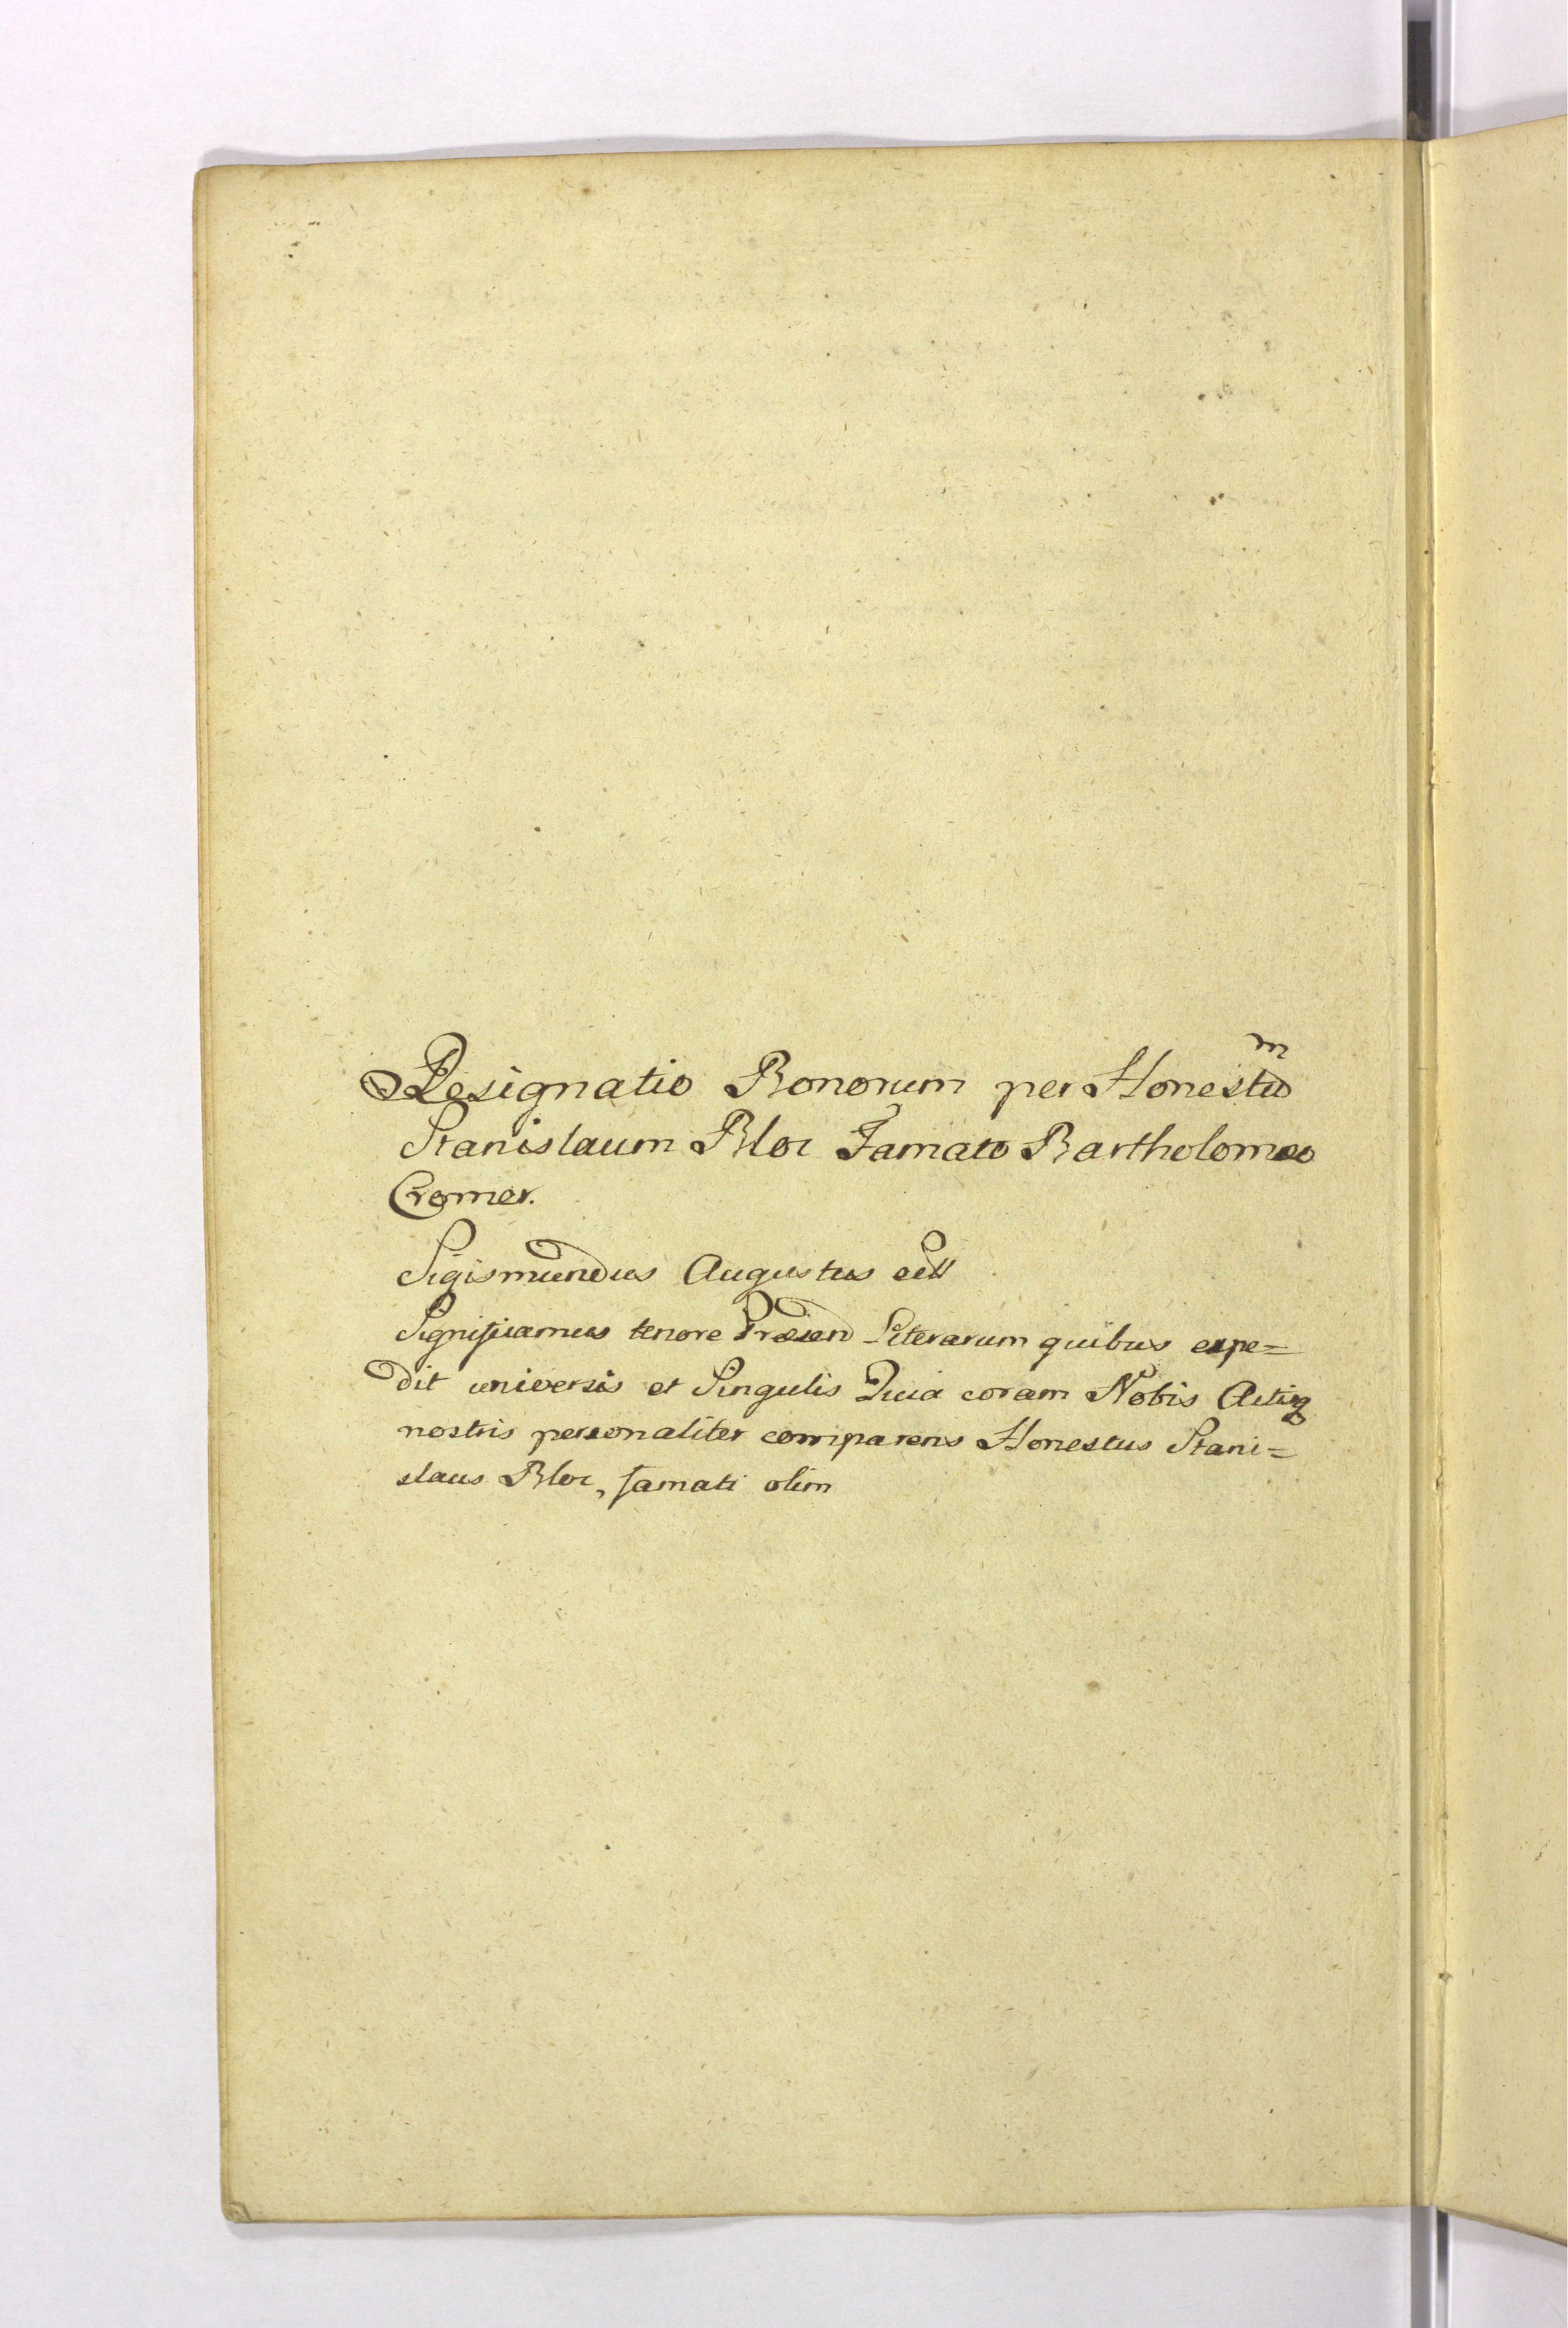 Resignatio Bonorum per Honestu̅m
Stanislaum Bloc Famato Bartholomæo
Cromer.
Sigismundus Augustus ett
Significamus tenore Præsen Literarum quibus expe=
dit universis et Singulis Quia coram Nobis Actisq
nostris personaliter comparens Honestus Stani=
slaus Bloc, famati olim